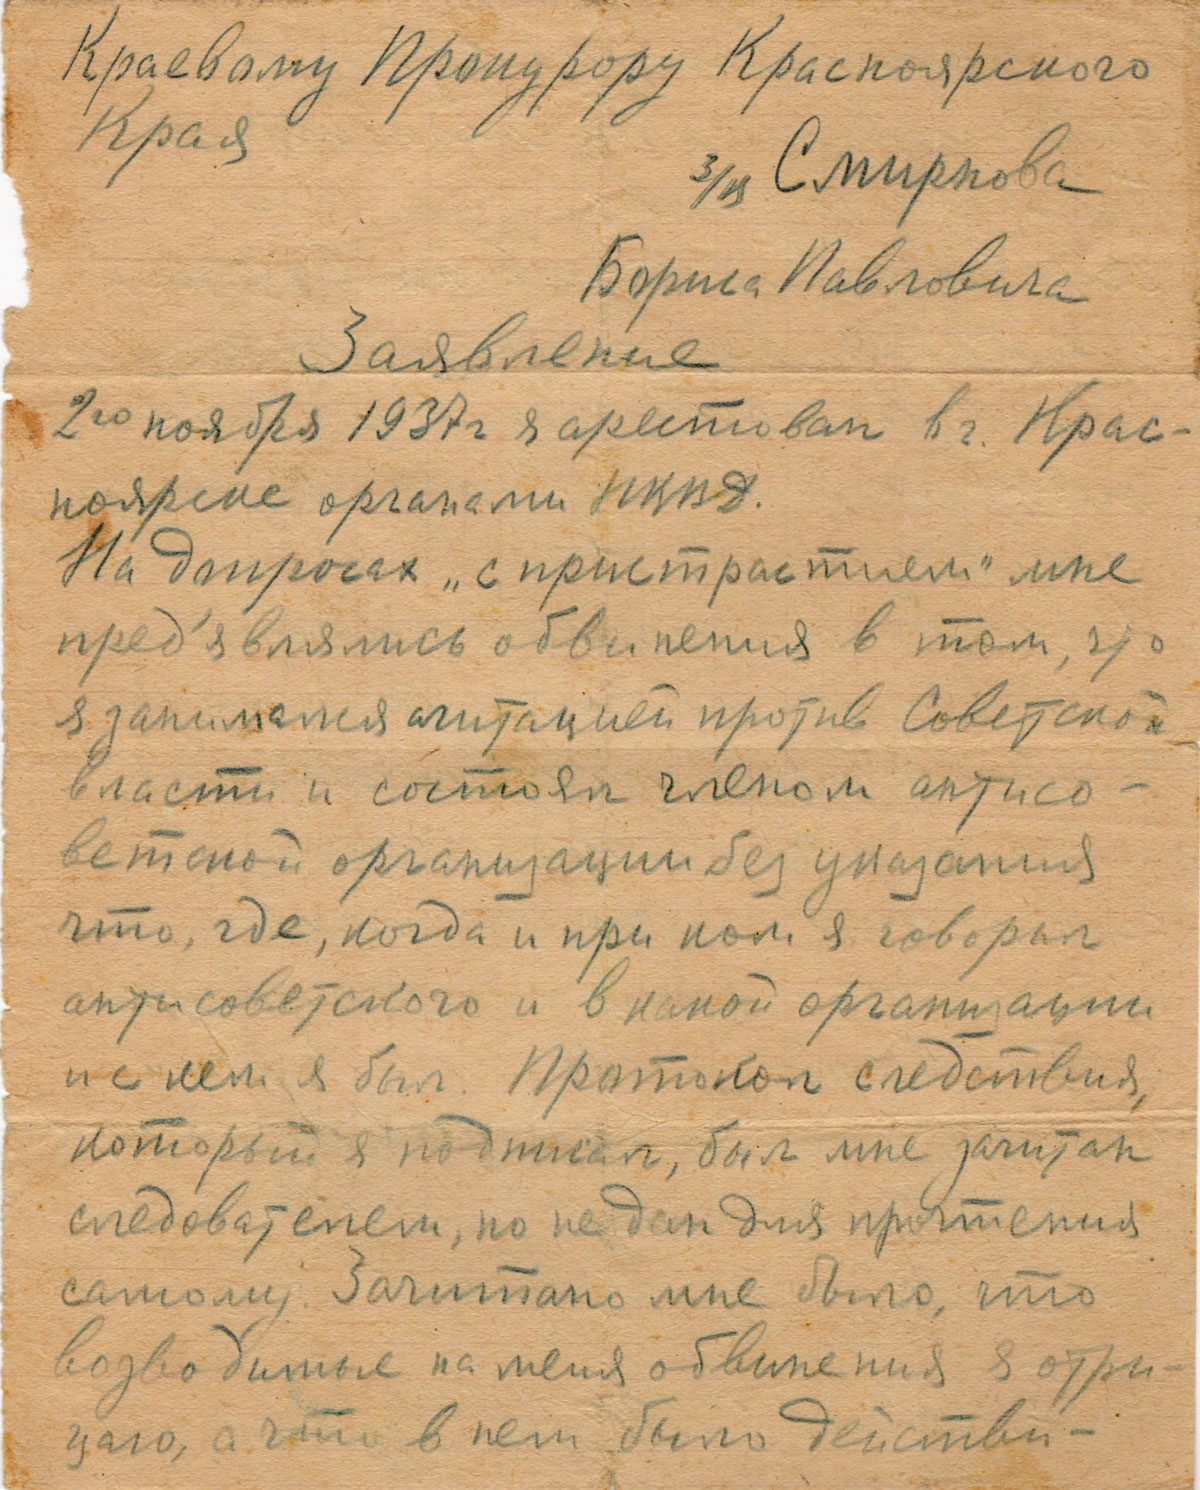 Краевому Прокурору Красноярского
Края
з/кя Смирнова
Бориса Павловича
Заявление
2го ноября 1937г я арестован в г. Крас-
ноярске органами НКВД.
На допросах „с пристрастием“ мне
пред'являлись обвинения в том, что
я занимался агитацией против Советской
власти и состоял членом антисо-
ветской организации без указания
что, где, когда и при ком я говорил
антисоветского и в какой организации
и с кем я был. Протокол следствия,
который я подписал, был мне зачитан
следователем, но не дан для прочтения
самому. Зачитано мне было, что
возводимые на меня обвинения я отри-
цаю, а что в нем было действи-